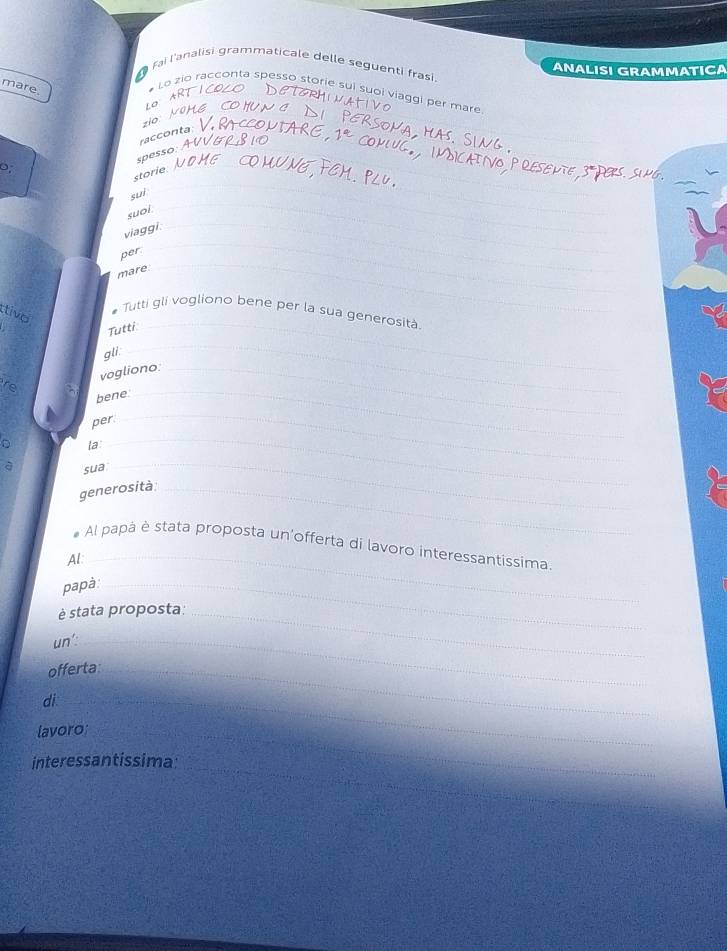 ANALISI GRAMMATICA
1 Fai l'analisi grammaticale delle seguenti frasi.
• Lo zio racconta spesso storie sui suoi viaggi per mare.
Lo: ARTICOLO DETERMINATIVO
zio: NOME COMUNE DI PERSONA, MAS. SING.
racconta: V. RACCONTARE, 1ª CONIUG., INDICATIVO, PRESENTE, 3ª PERS. SING.
spesso: AVVERBIO
storie: NOME COMUNE, FEM. PLU.
sui:
suoi:
viaggi:
per:
mare:
• Tutti gli vogliono bene per la sua generosità.
Tutti:
gli:
vogliono:
bene:
per:
la:
sua:
generosità:
• Al papà è stata proposta un'offerta di lavoro interessantissima.
Al:
papà:
è stata proposta:
un':
offerta:
di:
lavoro:
interessantissima:
mare.
o;
ttivo
re
o
a